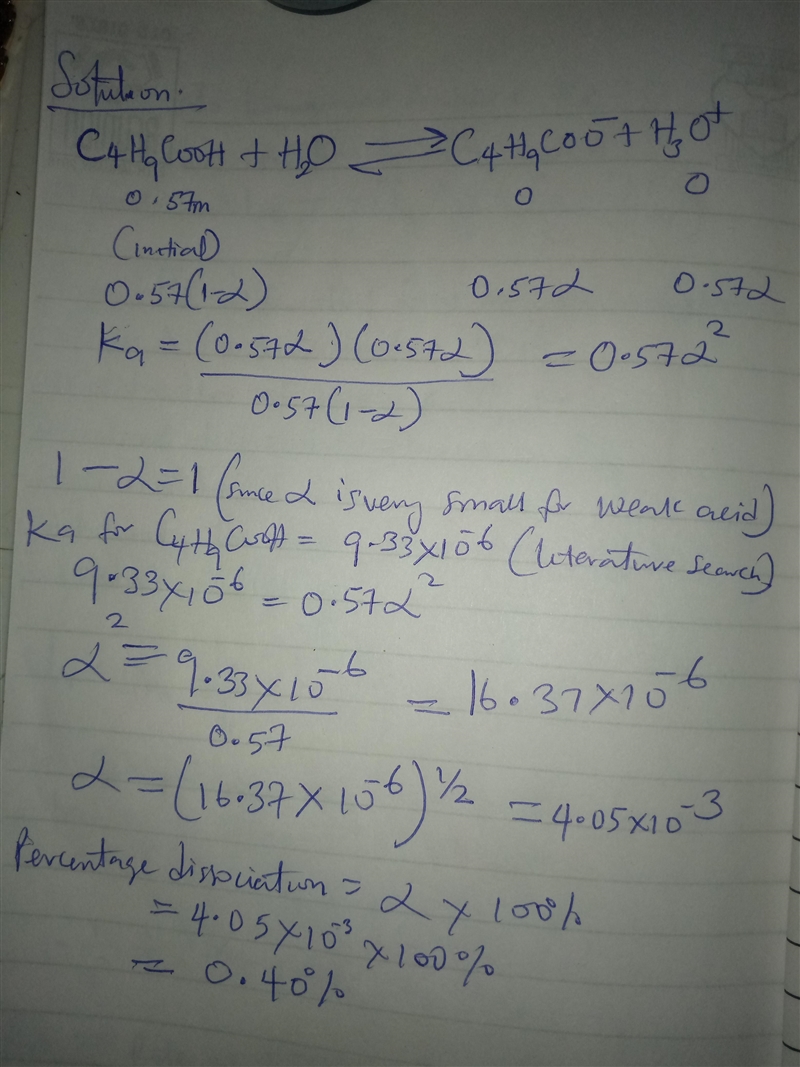 Solution.
C4H9COOH + H2O ⇌ C4H9COO⁻ + H3O⁺
0.57m 0 0
(initial)
0.57(1-α) 0.57α 0.57α
Ka = (0.57α)(0.57α) / 0.57(1-α) = 0.57α²
1-α=1 (since α is very small for weak acid)
Ka for C4H9COOH = 9.33×10⁻⁶ (literature search)
9.33×10⁻⁶ = 0.57α²
α² = 9.33×10⁻⁶ / 0.57 = 16.37×10⁻⁶
α = (16.37×10⁻⁶)^1/2 = 4.05×10⁻³
Percentage dissociation = α × 100%
= 4.05×10⁻³ × 100%
= 0.40%